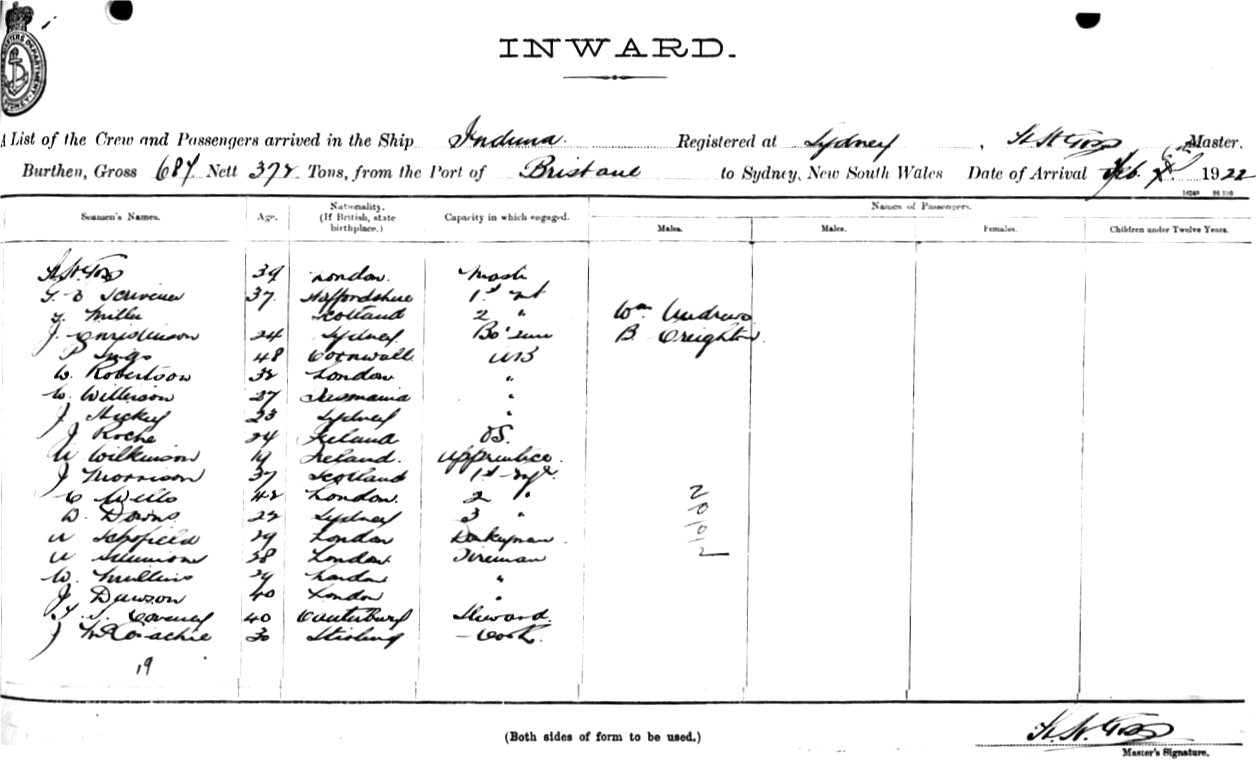 INWARD.
A List of the Crew and Passengers arrived in the Ship Induna. Registered at Sydney, Master.
Burthen, Gross 687 Nett 372 Tons, from the Port of Brisbane to Sydney, New South Wales Date of Arrival Feb. 1922
Seamen's Names. Age. Nationality. (If British, state birthplace.) Capacity in which engaged. Names of Passengers.
Males. Males. Females. Children under Twelve Years.
39 London.
37. Staffordshire 1st
Miller Scotland 2 " Wm Andrews
J. 24 Sydney Bo'sun B. Creighton.
P 48 Cornwall AB
W. Robertson 32 London "
W. Wilkinson 27 Tasmania "
J Hickey 23 Sydney "
J Roche 24 Ireland OS.
A Wilkinson 19 Ireland. Apprentice.
J Morrison 37 Scotland 1st
C Wells 42 London. 2 "
D. Downs 22 Sydney 3 "
A Schofield 29 London Donkeyman.
A 38 London. Fireman
W. Mullins 29 London "
J Dawson 40 London "
40 Canterbury Steward.
J 30 Stirling Cook.
19
2
0
0
2
(Both sides of form to be used.)
Master's Signature.